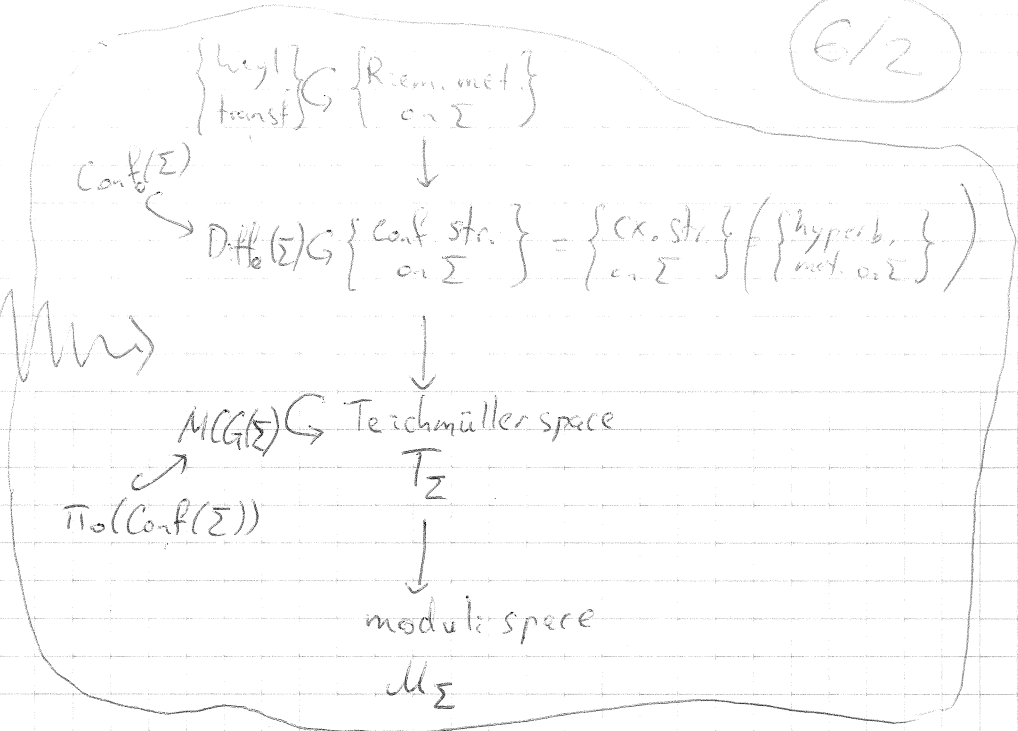 6/2
{Weyl transf} ↻ {Riem. met. on Σ}
↓
Conf₀(Σ)
Diff₀(Σ) ↻ {conf. str. on Σ} = {cx. str. on Σ} (= {hyperb. met. on Σ})
↓
MCG(Σ) ↻ Teichmüller space
T_Σ
π₀(Conf(Σ))
↓
moduli space
M_Σ